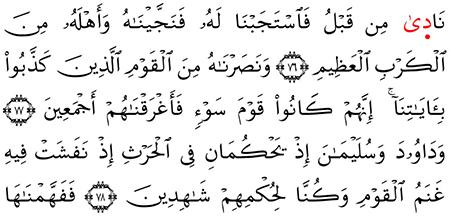 نَادَىٰ مِن قَبْلُ فَٱسْتَجَبْنَا لَهُۥ فَنَجَّيْنَـٰهُ وَأَهْلَهُۥ مِنَ
ٱلْكَرْبِ ٱلْعَظِيمِ ﴿٧٦﴾ وَنَصَرْنَـٰهُ مِنَ ٱلْقَوْمِ ٱلَّذِينَ كَذَّبُوا۟
بِـَٔايَـٰتِنَآ ۚ إِنَّهُمْ كَانُوا۟ قَوْمَ سَوْءٍ فَأَغْرَقْنَـٰهُمْ أَجْمَعِينَ ﴿٧٧﴾
وَدَاوُۥدَ وَسُلَيْمَـٰنَ إِذْ يَحْكُمَانِ فِى ٱلْحَرْثِ إِذْ نَفَشَتْ فِيهِ
غَنَمُ ٱلْقَوْمِ وَكُنَّا لِحُكْمِهِمْ شَـٰهِدِينَ ﴿٧٨﴾ فَفَهَّمْنَـٰهَا